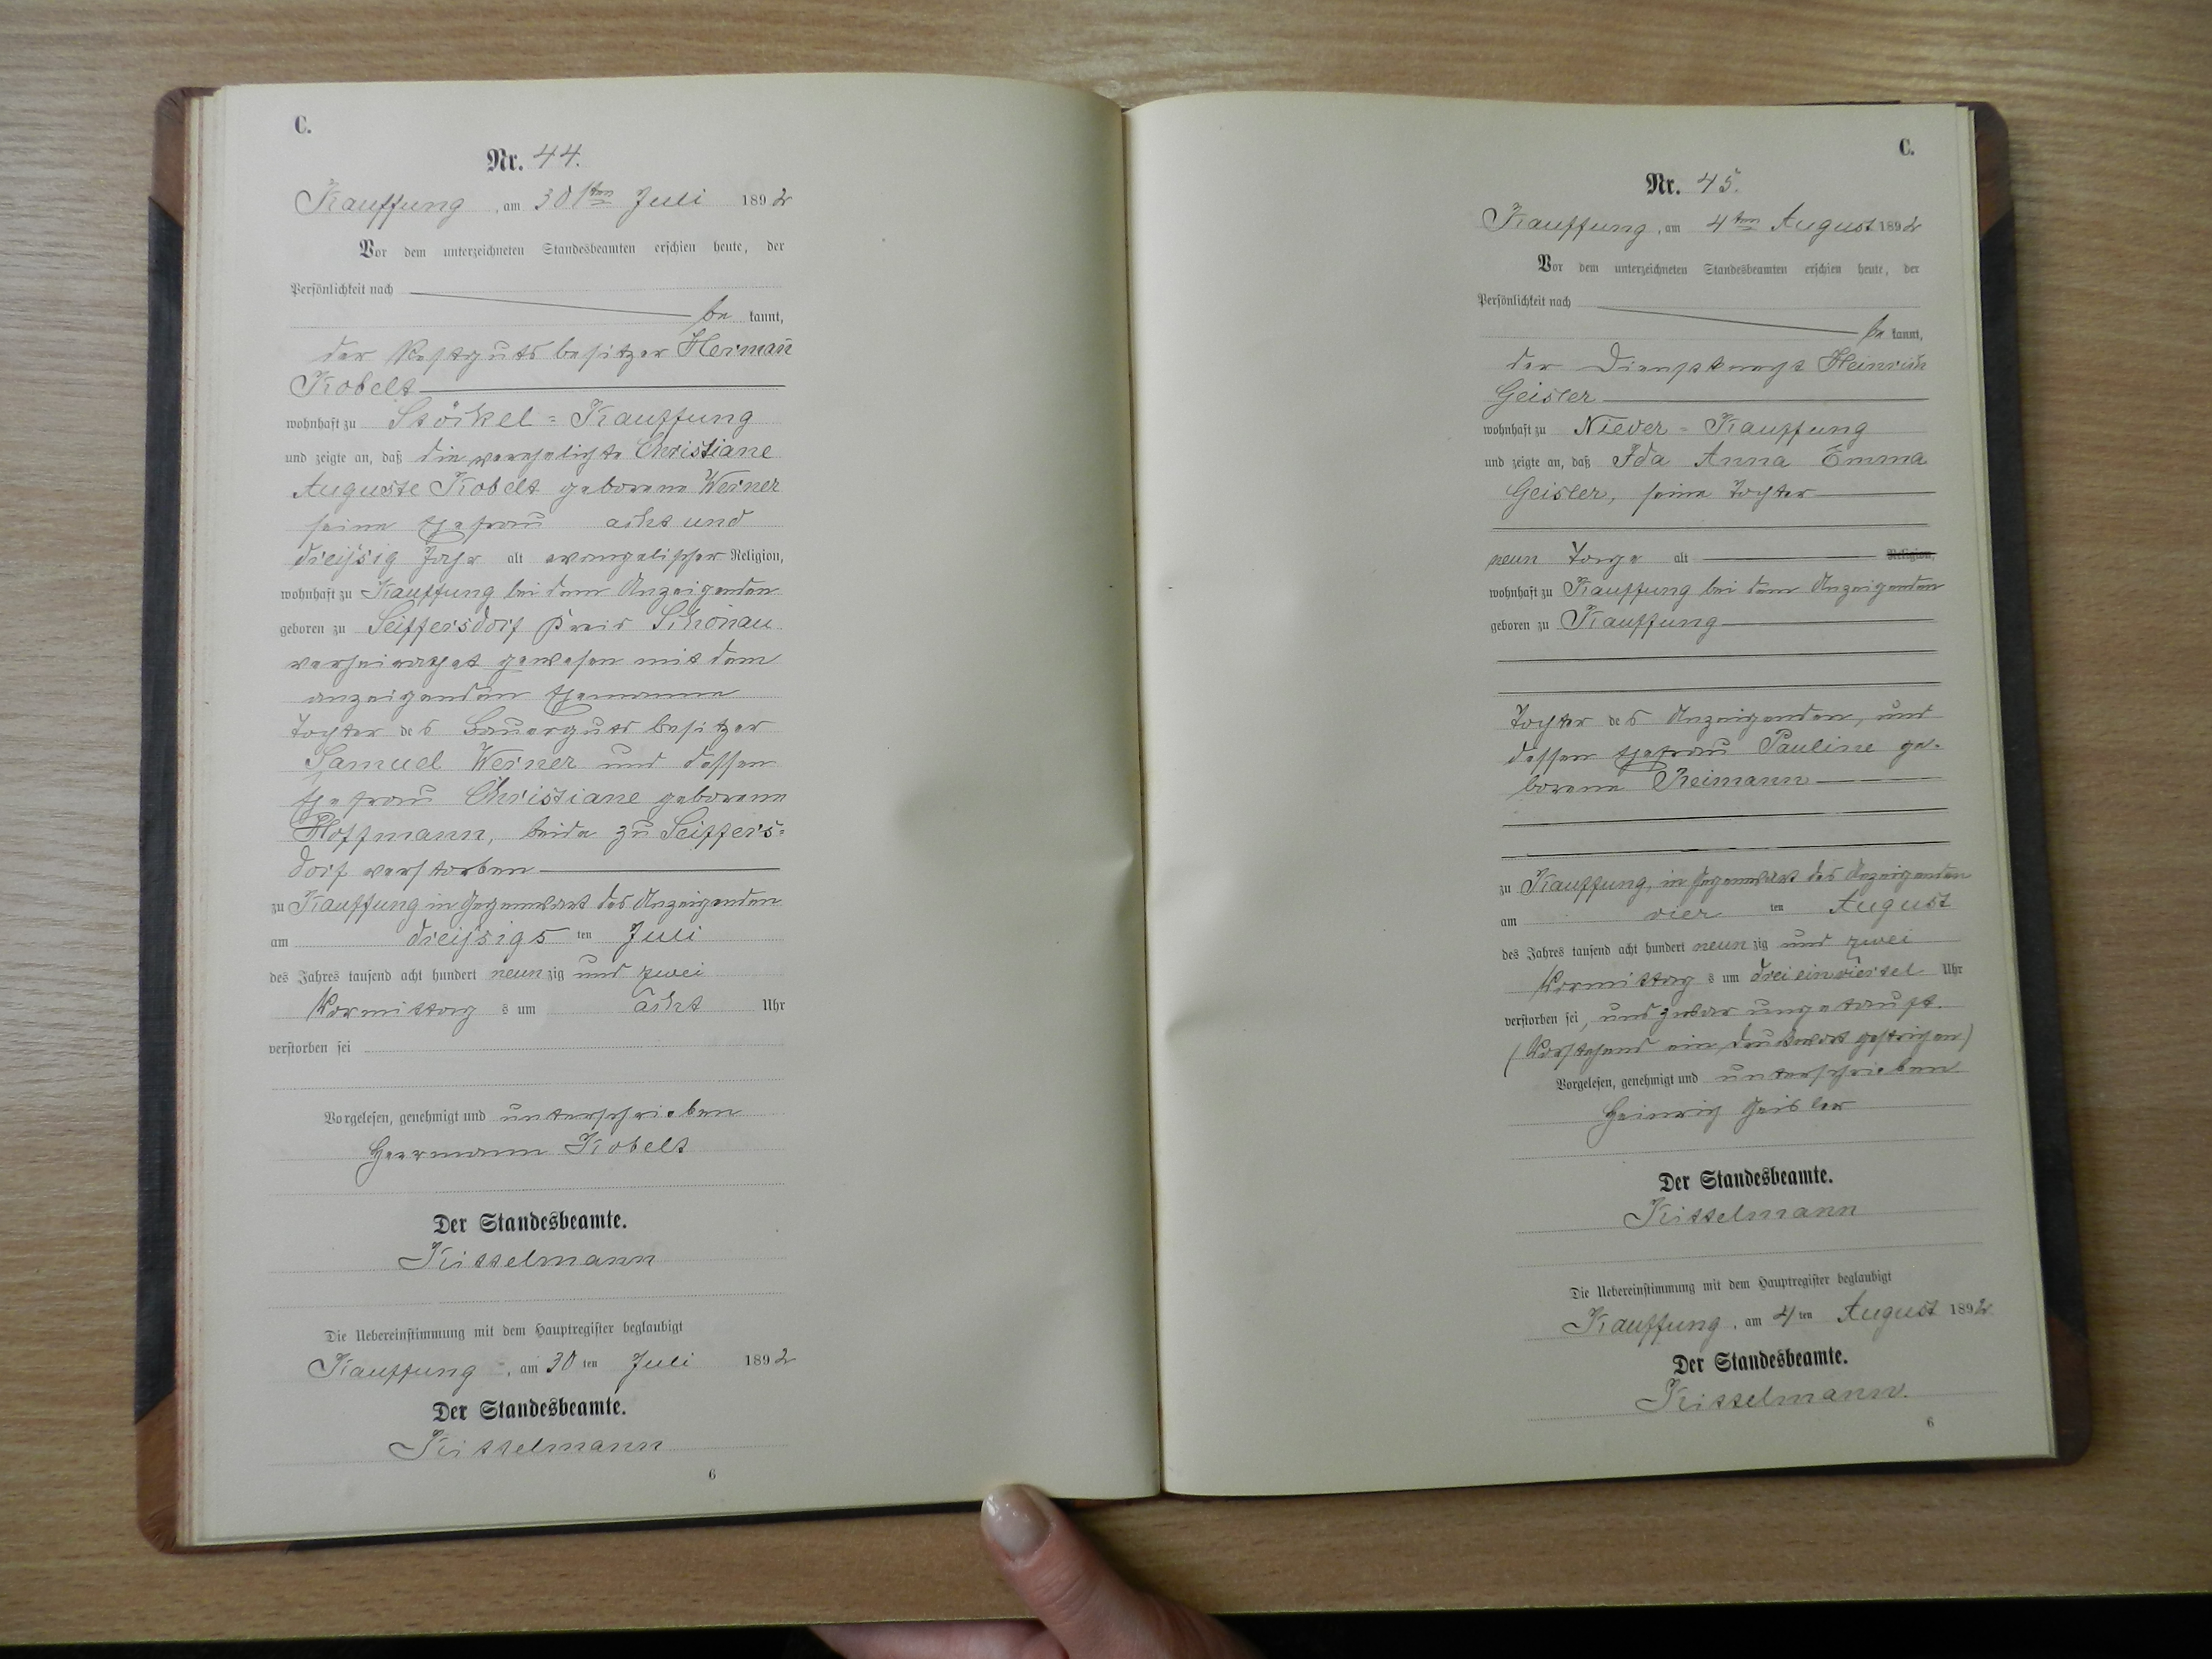 C.
Nr. 44.
Kauffung, am 30sten Juli 1892
Vor dem unterzeichneten Standesbeamten erschien heute, der
Persönlichkeit nach
be kannt,
der Restgutsbesitzer Herman̄
Kobelt
wohnhaft zu Stöckel=Kauffung
und zeigte an, daß die verehelichte Christiane
Auguste Kobelt geborene Werner
seine Ehefrau acht und
dreißig Jahr alt evangelischer Religion,
wohnhaft zu Kauffung bei dem Anzeigenden
geboren zu Seiffersdorf Kreis Schönau
verheirathet gewesen mit dem
anzeigenden Ehemanne
Tochter des Bauerguts besitzer
Samuel Werner und dessen
Ehefrau Christiane geborene
Hoffmann, beide zu Seiffers=
dorf verstorben
zu Kauffung in Gegenwart des Anzeigenden
am dreißigs ten Juli
des Jahres tausend acht hundert neun zig und zwei
Vormittag s um acht Uhr
verstorben sei
Vorgelesen, genehmigt und unterschrieben
Herrmann Kobelt
Der Standesbeamte.
Kisselmann
Die Uebereinstimmung mit dem Hauptregister beglaubigt
Kauffung, am 30 ten Juli 1892
Der Standesbeamte.
Kisselmann
6
C.
Nr. 45.
Kauffung, am 4ten August 1892
Vor dem unterzeichneten Standesbeamten erschien heute, der
Persönlichkeit nach
be kannt,
der Dienstknecht Heinrich
Geisler
wohnhaft zu Nieder=Kauffung
und zeigte an, daß Ida Anna Emma
Geisler, seine Tochter
neun Tage alt Religion,
wohnhaft zu Kauffung bei dem Anzeigenden
geboren zu Kauffung
Tochter des Anzeigenden, und
dessen Ehefrau Pauline ge-
borene Reimann
zu Kauffung, in Gegenwart des Anzeigenden
am vier ten August
des Jahres tausend acht hundert neun zig und zwei
Vormittag s um drei einviertel Uhr
verstorben sei, und zwar ungetauft.
(Vorstehend ein Druckwort gestrichen)
Vorgelesen, genehmigt und unterschrieben
Heinrich Geisler
Der Standesbeamte.
Kisselmann
Die Uebereinstimmung mit dem Hauptregister beglaubigt
Kauffung, am 4 ten August 1892
Der Standesbeamte.
Kisselmann.
6